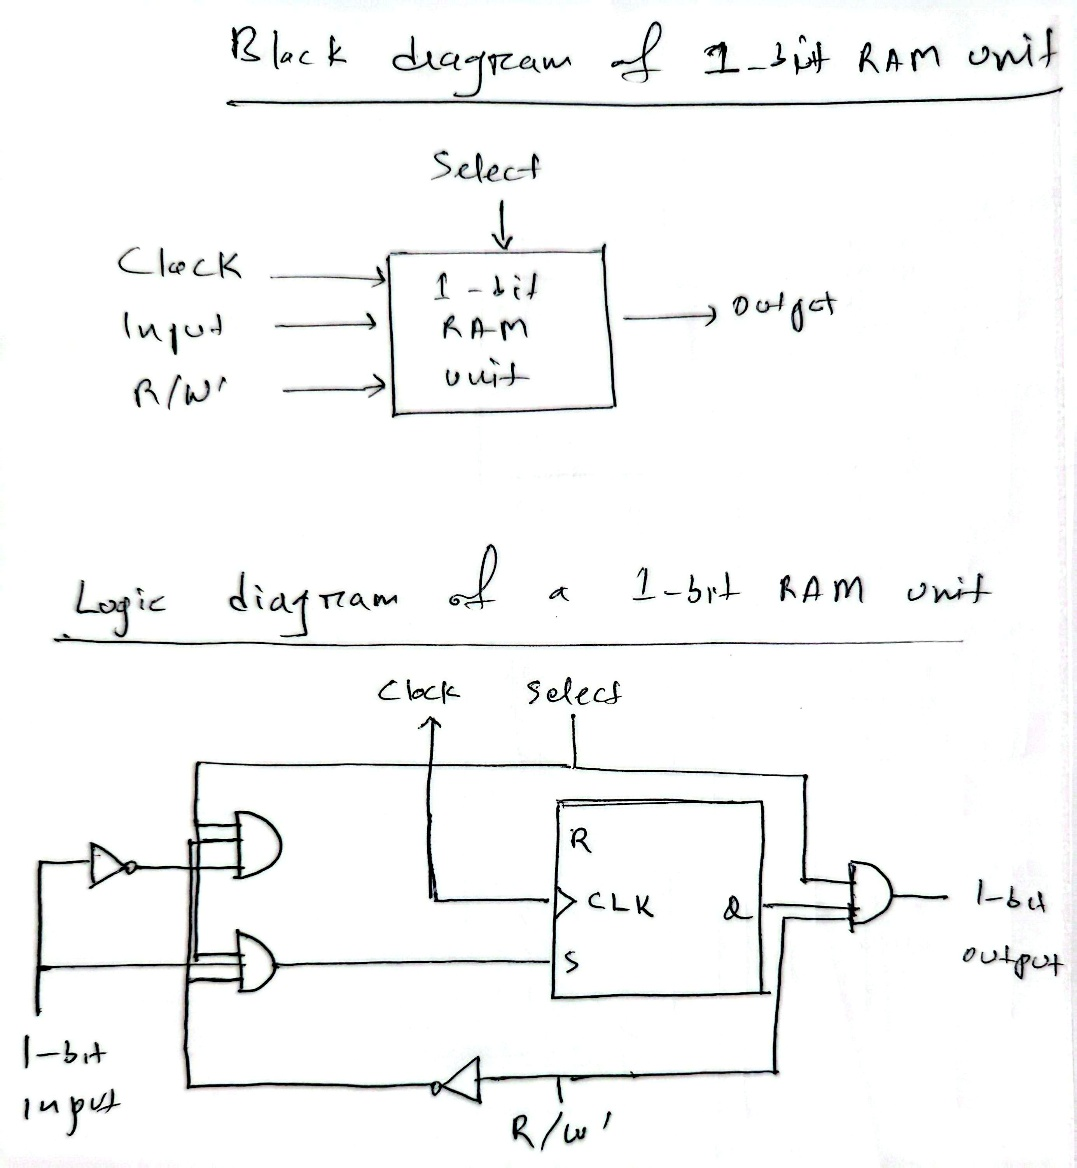 Block diagram of 1-bit RAM unit
Select
Clock
Input
R/W'
1-bit
RAM
unit
output
Logic diagram of a 1-bit RAM unit
Clock
Select
R
CLK
Q
S
1-bit
output
1-bit
input
R/W'